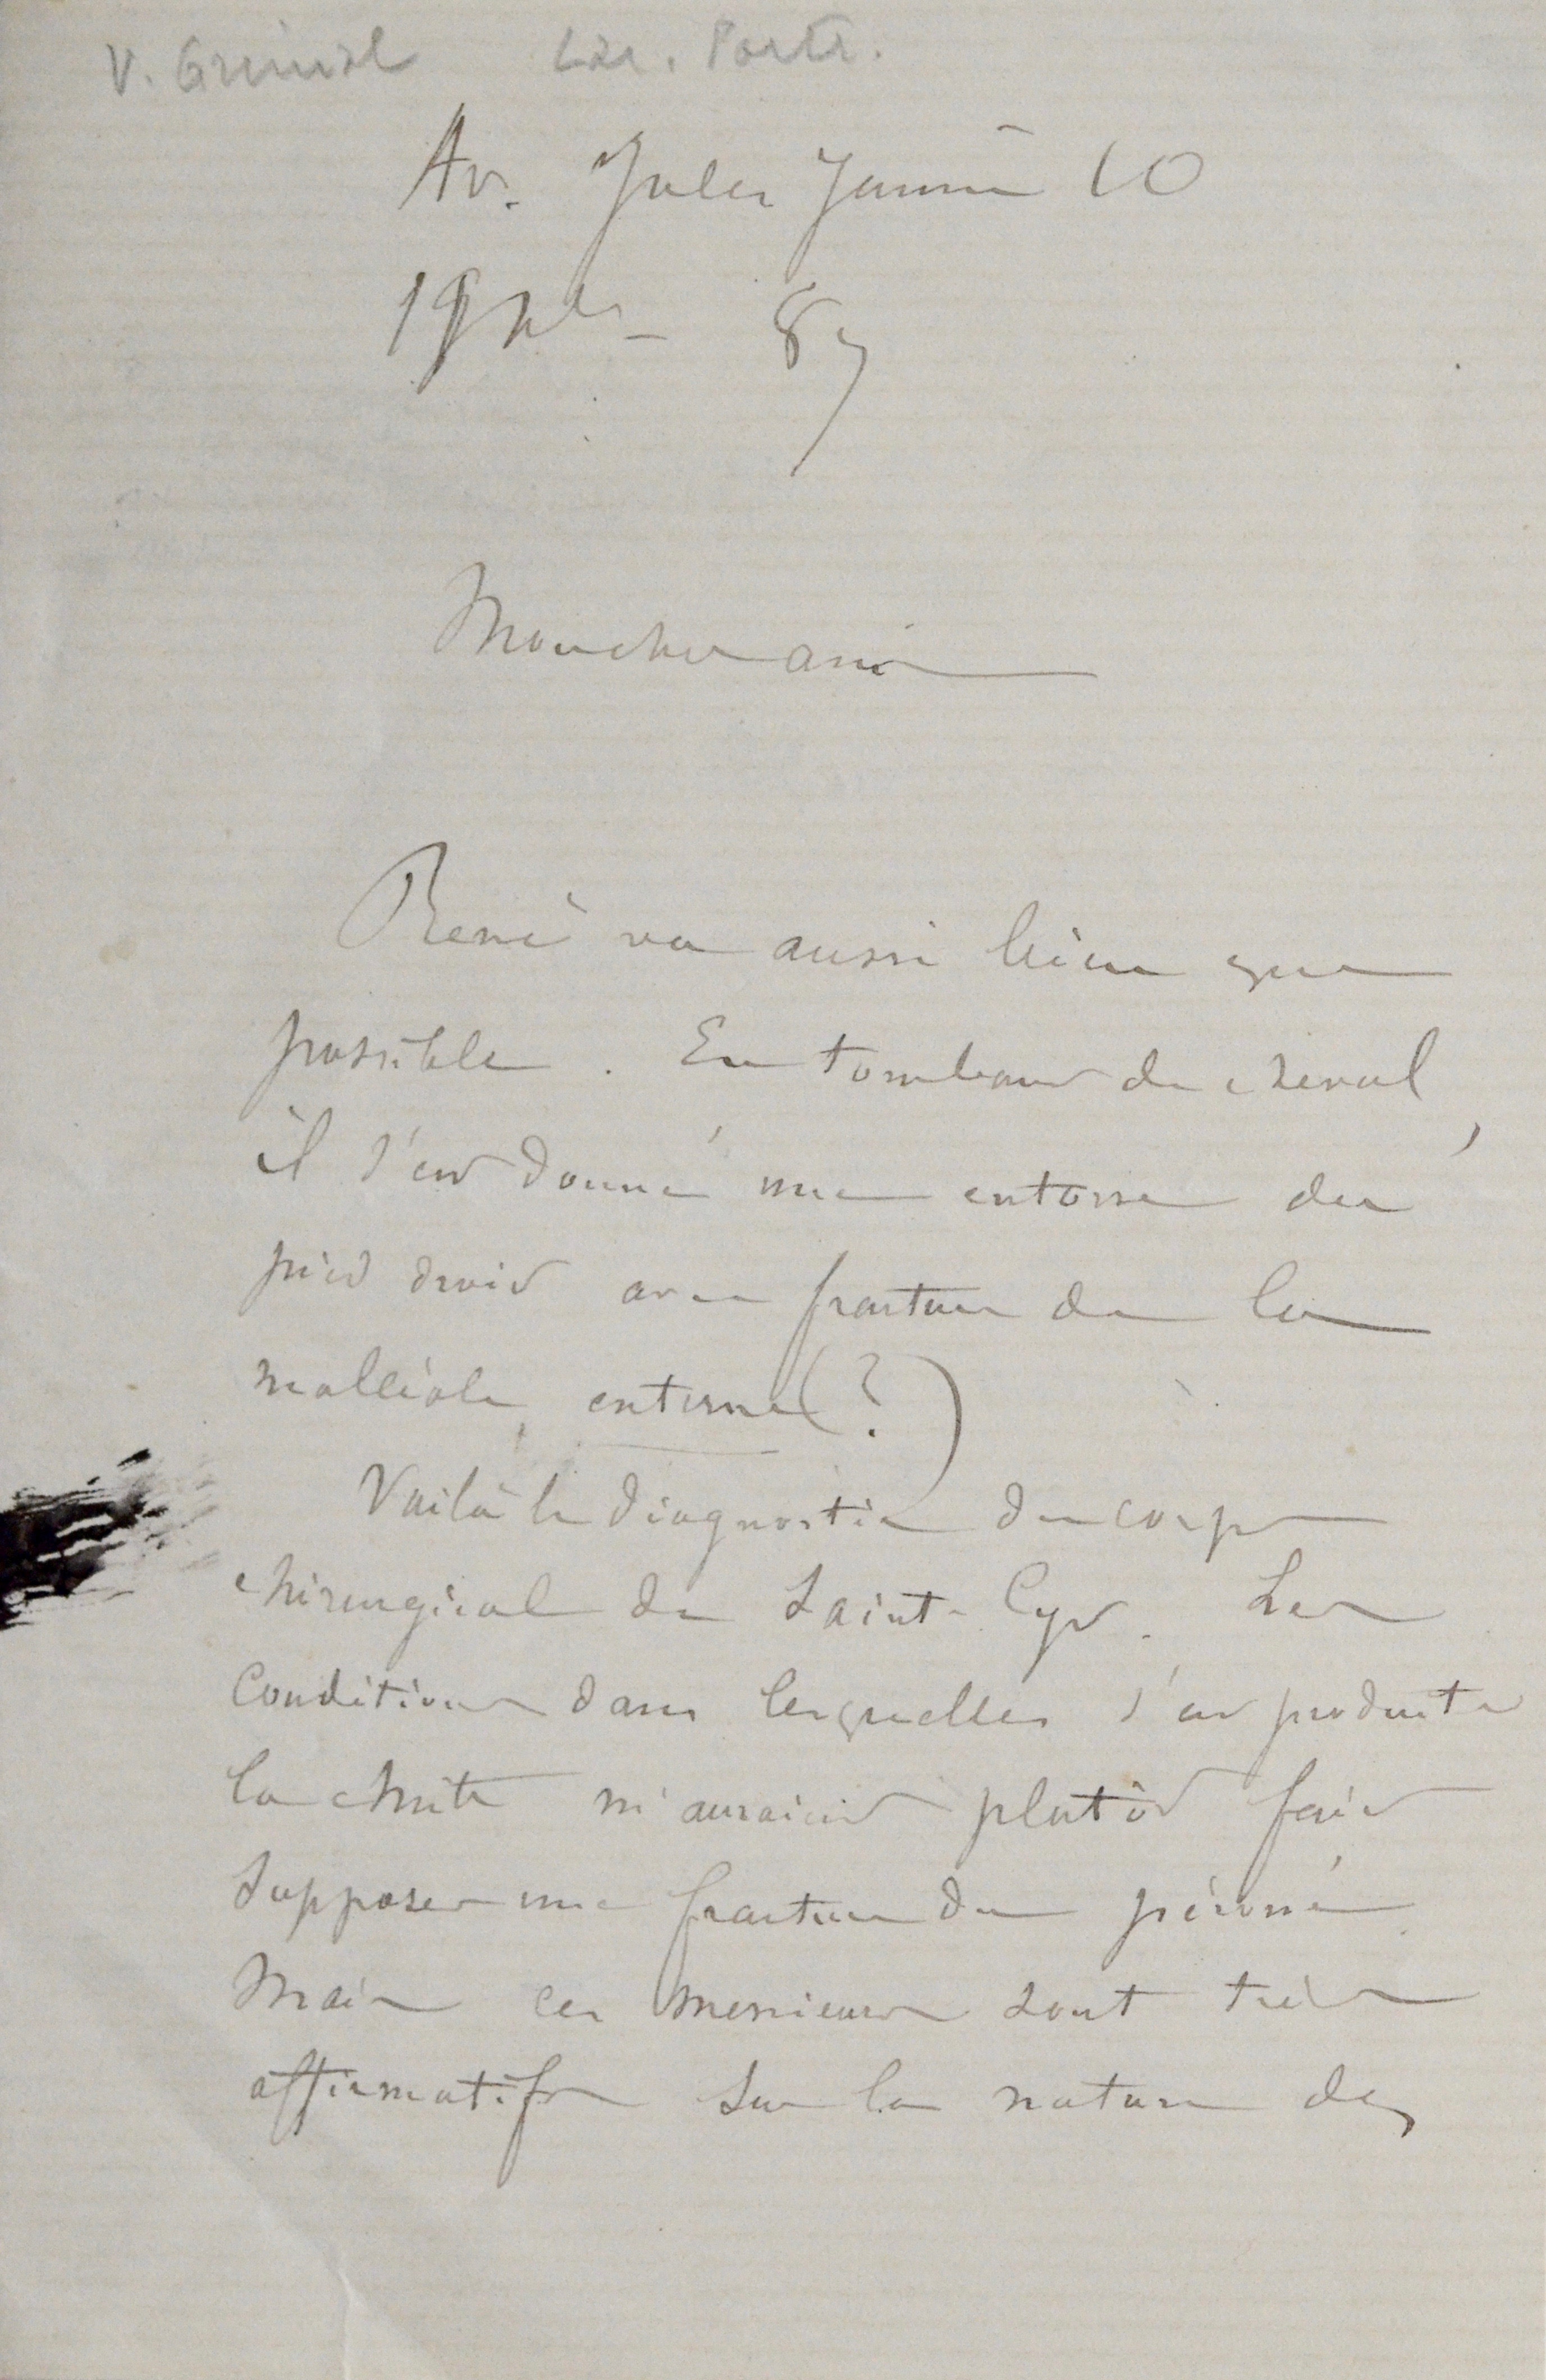 Av. Jules Janin 10
87
Mon cher ami
René va aussi bien que
possible. En tombant de cheval,
il s'est donné une entorse du
pied droit avec fracture de la
malléole externe (?)
Voilà le diagnostic du corps
chirurgical de Saint-Cyr. Les
conditions dans lesquelles s'est produite
la chute m'auraient plutôt fait
supposer une fracture du péroné
Mais ces messieurs sont très
affirmatifs sur la nature de